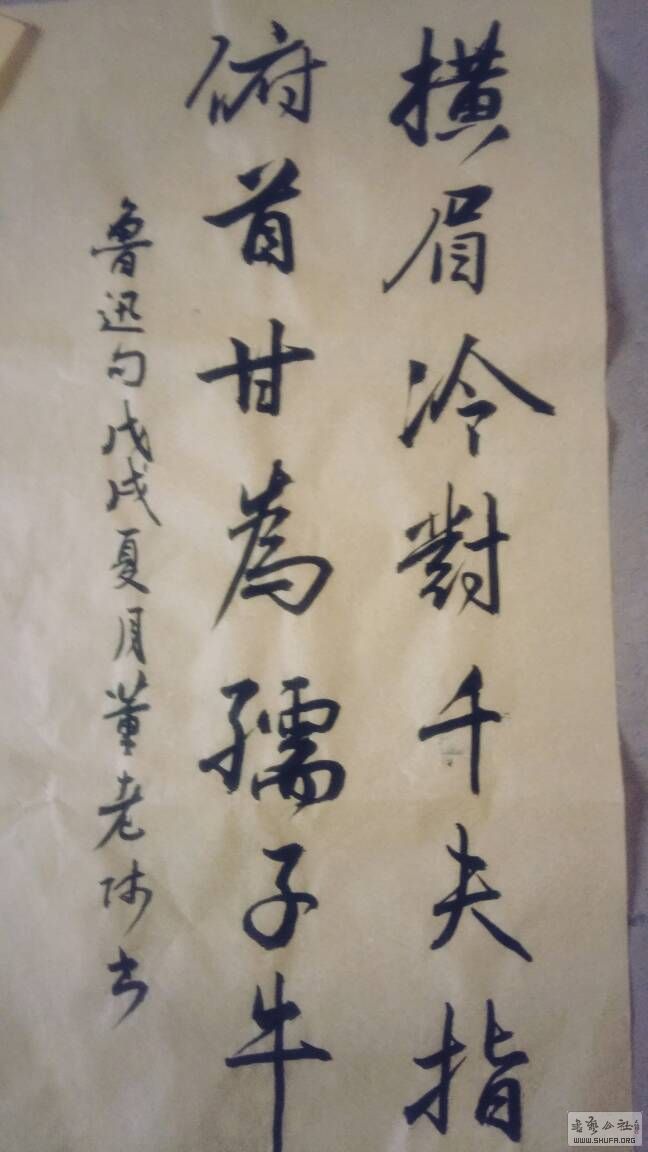 橫眉冷對千夫指
俯首甘為孺子牛
魯迅句戊戌夏月董老师书
书艺公社
WWW.SHUFA.ORG